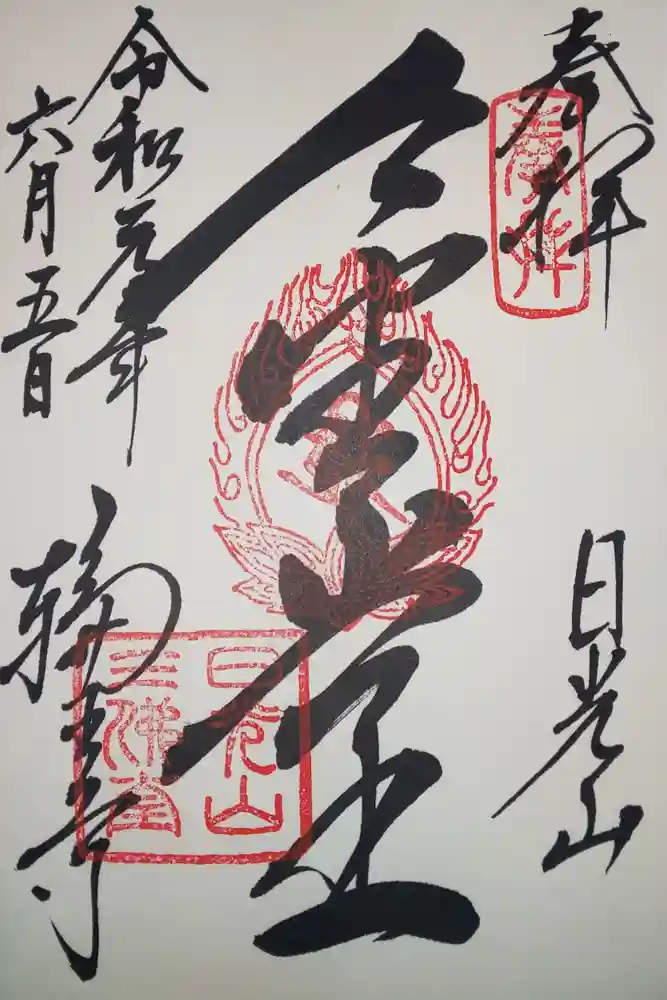 奉拝
日光山
令和元年
六月五日
輪王寺
奉拝
日光山
三佛堂